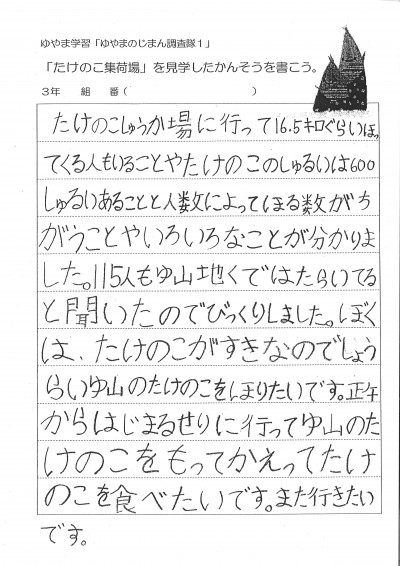 ゆやま学習「ゆやまのじまん調査隊1」
「たけのこ集荷場」を見学したかんそうを書こう。
3年　組　番(　　　　　)
たけのこしゅうか場に行って16.5キロぐらいほっ
てくる人もいることやたけのこのしゅるいは600
しゅるいあることと人数によってほる数がち
がうことやいろいろなことが分かりま
した。115人もゆ山地くではたらいてる
と聞いたのでびっくりしました。ぼく
は、たけのこがすきなのでしょう
らいゆ山のたけのこをほりたいです。正午
からはじまるせりに行ってゆ山のた
けのこをもってかえってたけ
のこを食べたいです。また行きたい
です。